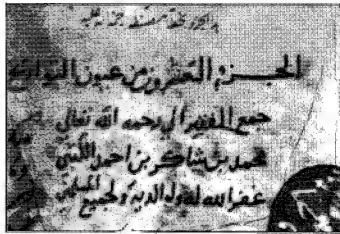 الجزء العشرون من عيون التواريخ
جمع الفقير الى رحمه الله تعالى
محمد بن شاكر بن احمد الكتبي
غفر الله له ولوالديه ولجميع المسلمين